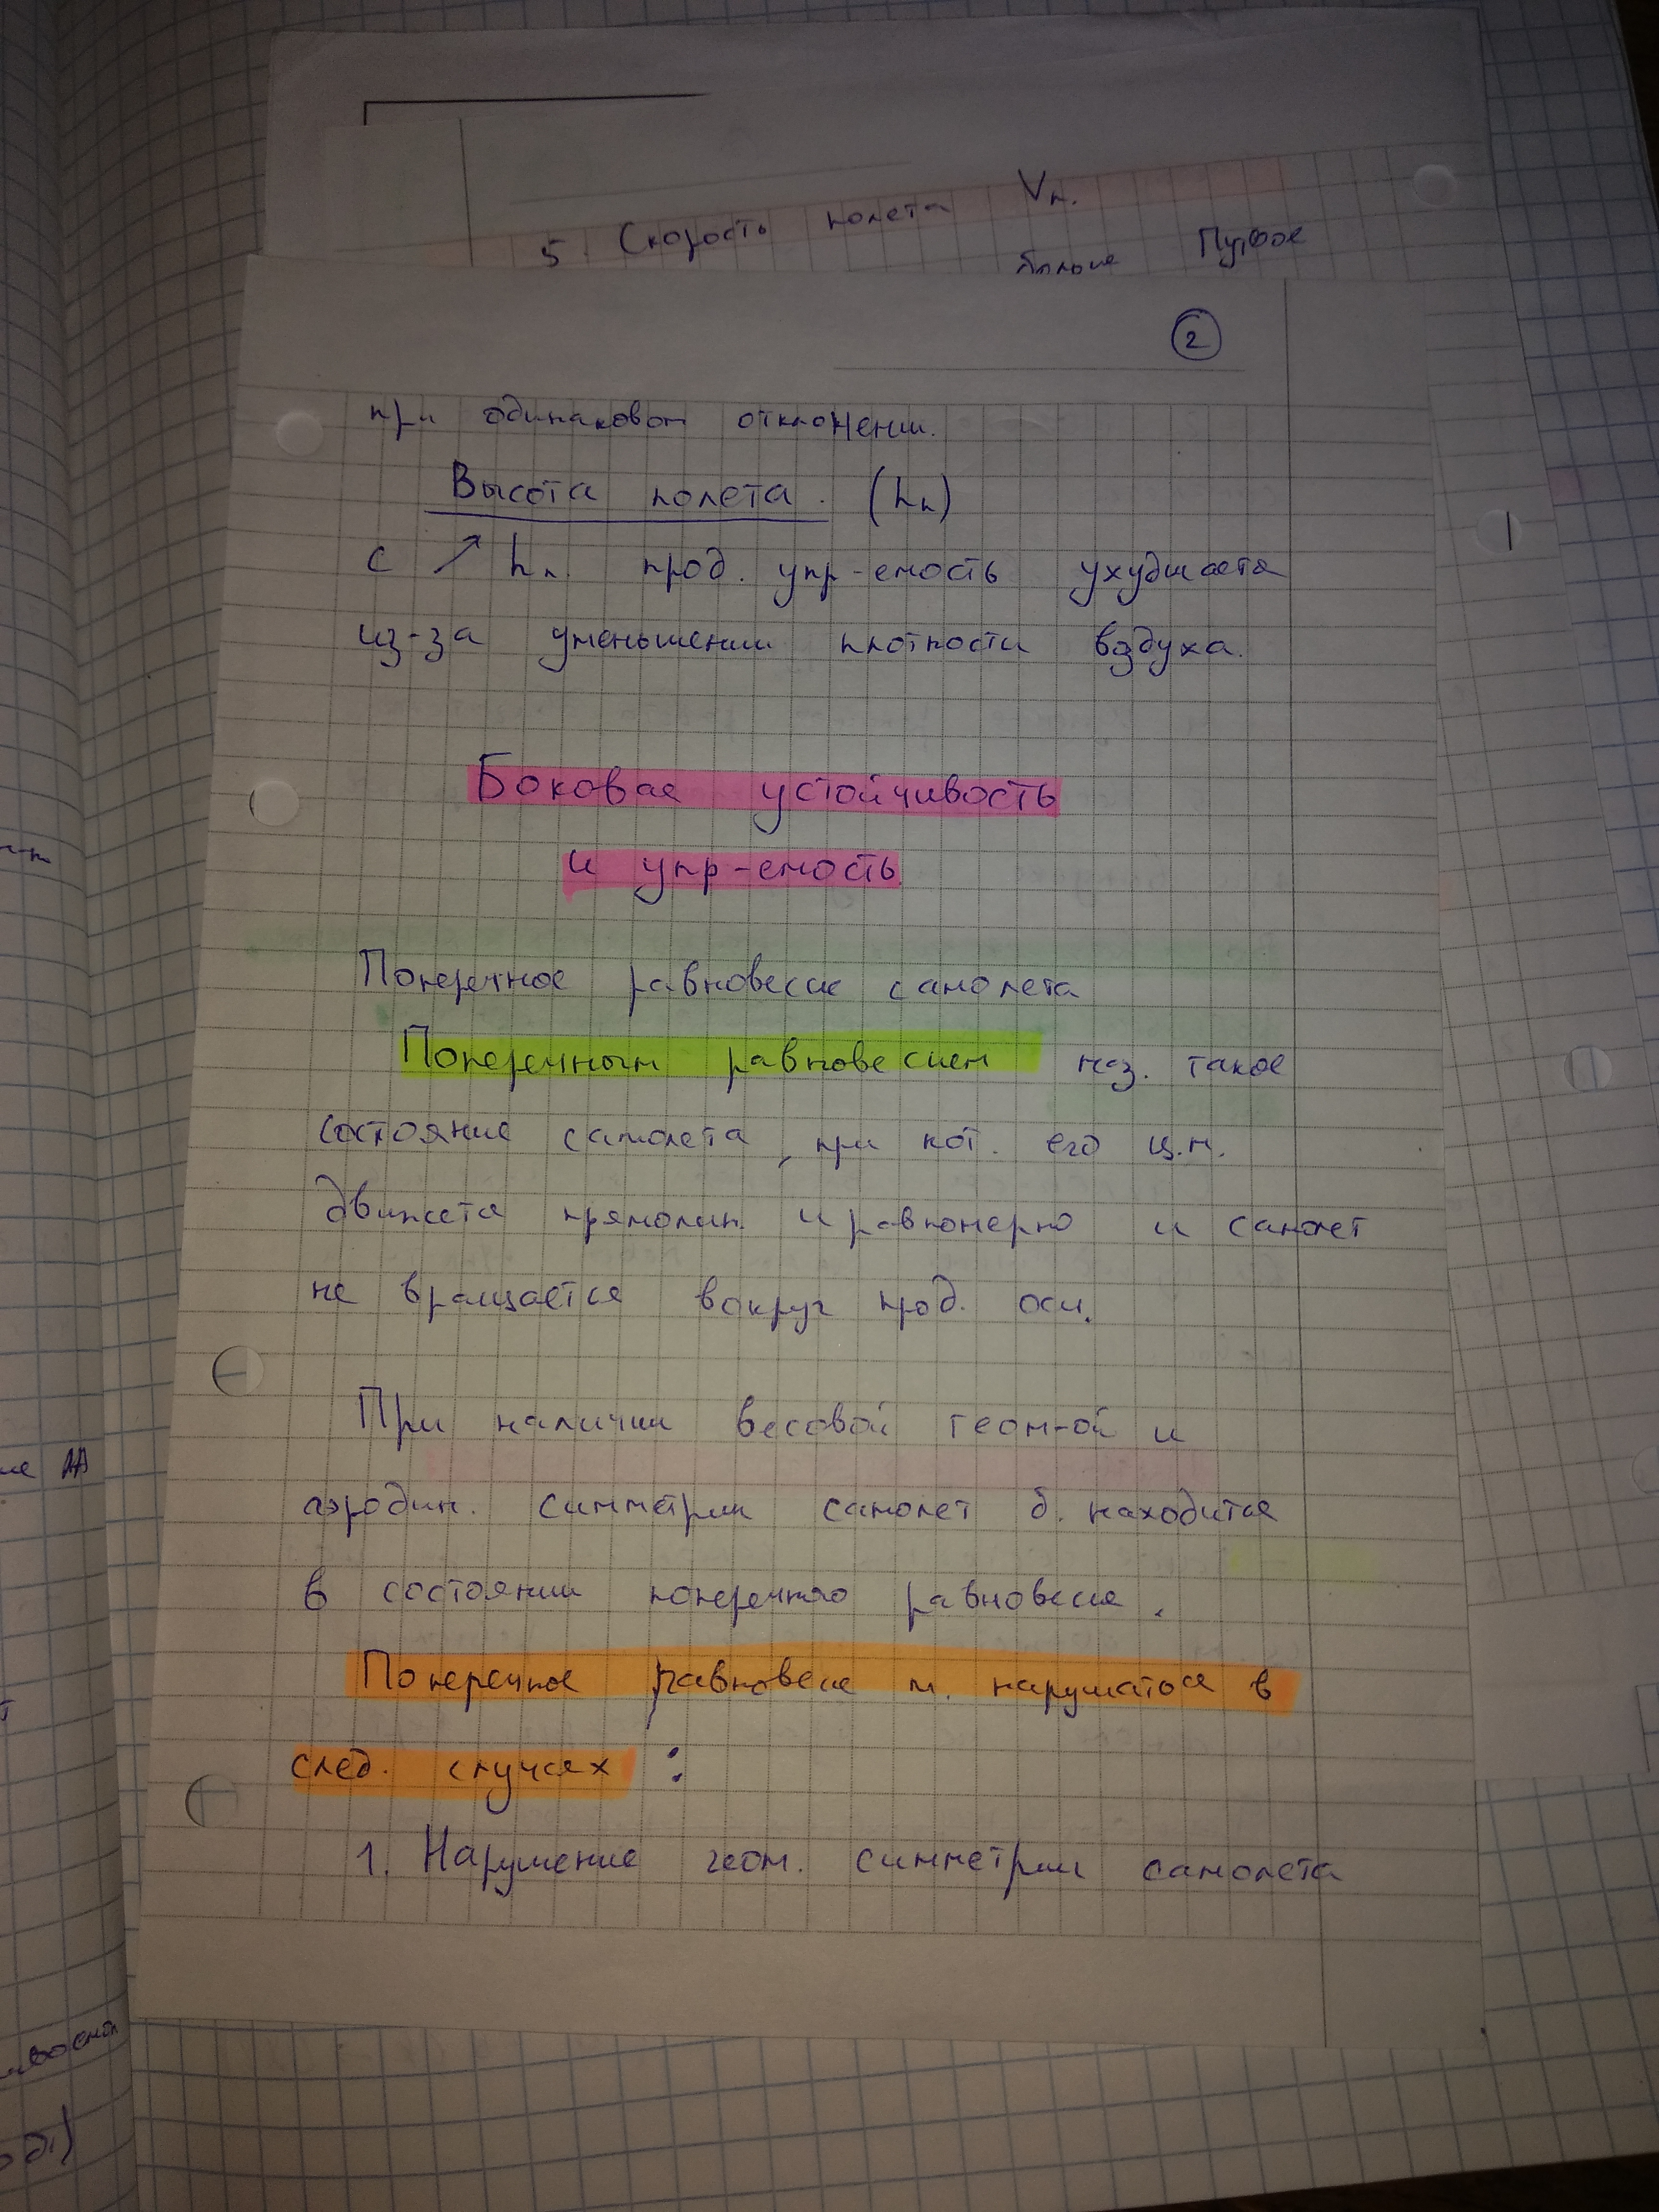 5. Скорость полета Vп.
больше
2
при одинаковом отклонении.
Высота полета. (hп)
с ↗ hп. прод. упр-емость ухудшается
из-за уменьшении плотности воздуха.
Боковая устойчивость
и упр-емость
Поперечное равновесие самолета
Поперечным равновесием наз. такое
состояние самолета, при кот. его ц.м.
движется прямолин. и равномерно и самолет
не вращается вокруг прод. оси.
При наличии весовой геом-ой и
аэродин. симметрии самолет б. находится
в состоянии поперечного равновесия.
Поперечное равновесие м. нарушаться в
след. случаях :
1. Нарушение геом. симметрии самолета